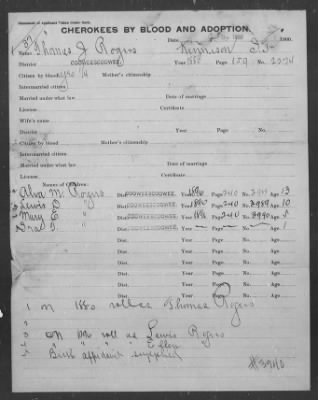 CHEROKEES BY BLOOD AND ADOPTION.
Date 1900.
Name Thomas J Rogers
District COOWEESCOOWEE. Year 1880 Page 159 No. 2074
Citizen by blood yes 1/4 Mother's citizenship
Intermarried citizen
Married under what law Date of marriage
License Certificate
Wife's name
District Year Page No.
Citizen by blood Mother's citizenship
Intermarried citizen
Married under what law Date of marriage
License Certificate
Names of Children:
Alva M. Rogers Dist. COOWEESCOOWEE. Year 1896 Page 240 No. Age 13
Lewis D " Dist. COOWEESCOOWEE. Year Page 240 No. 3989 Age 10
Mary E " Dist. COOWEESCOOWEE. Year 1896 Page 240 No. 3990 Age 5
" Dist. COOWEESCOOWEE. Year Page No. Age 1
Dist. Year Page No. Age
Dist. Year Page No. Age
Dist. Year Page No. Age
Dist. Year Page No. Age
Dist. Year Page No. Age
Dist. Year Page No. Age
1 on 1880 roll as Thomas Rogers
3 on roll as Lewis Rogers
" " " Ellen
Birth affidavit supplied
#3940